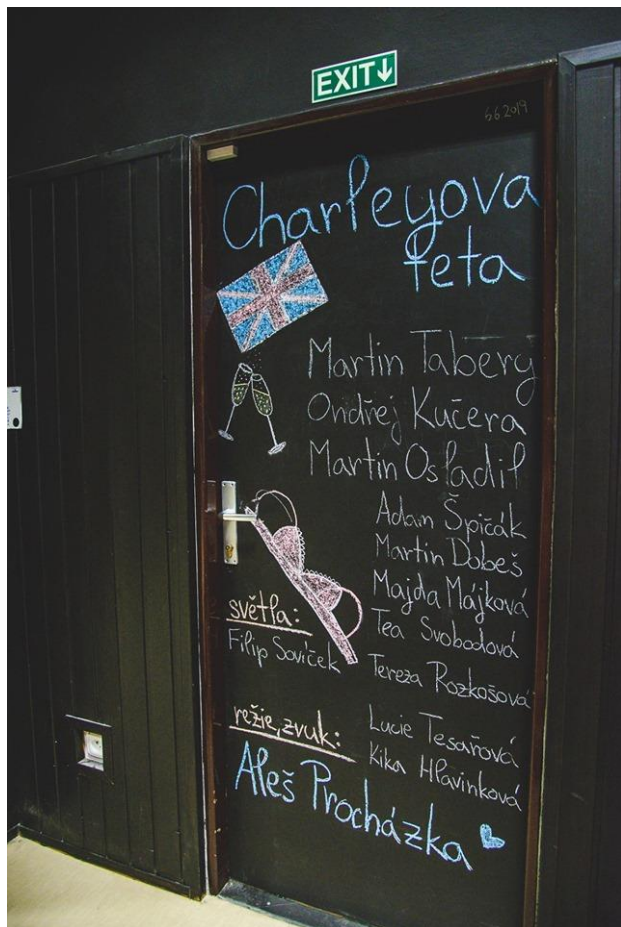 EXIT↓
6.6.2019
Charleyova
teta
Martin Taberý
Ondřej Kučera
Martin Osladil
Adam Špičák
Martin Dobeš
Majda Májková
Tea Svobodová
Tereza Rozkošová
Lucie Tesařová
Kika Hlavinková
světla:
Filip Sovíček
režie, zvuk:
Aleš Procházka